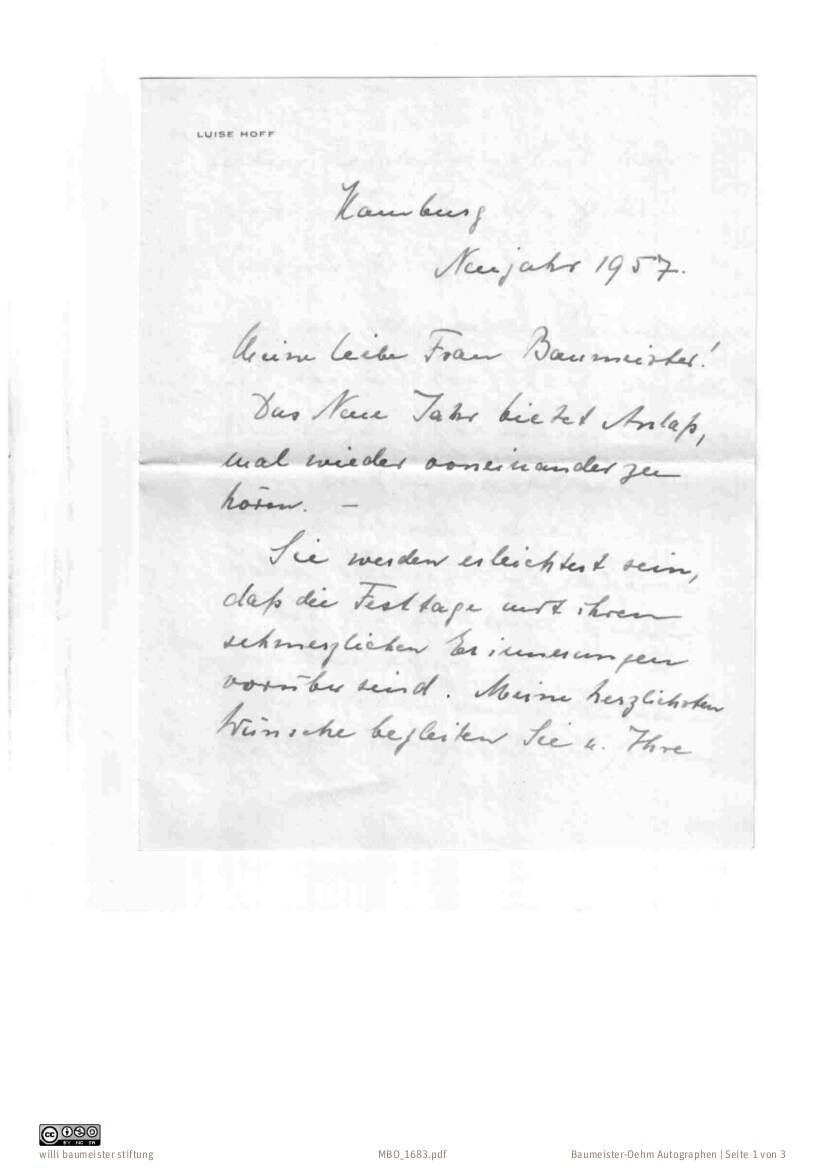 LUISE HOFF
Hamburg
Neujahr 1957.
Meine liebe Frau Baumeister!
Das Neue Jahr bietet Anlaß,
mal wieder voneinander zu
hören. —
Sie werden erleichtert sein,
daß die Festtage mit ihren
schmerzlichen Erinnerungen
vorüber sind. Meine herzlichsten
Wünsche begleiten Sie u. Ihre
CC BY NC SA
willi baumeister stiftung MBO_1683.pdf Baumeister-Oehm Autographen | Seite 1 von 3